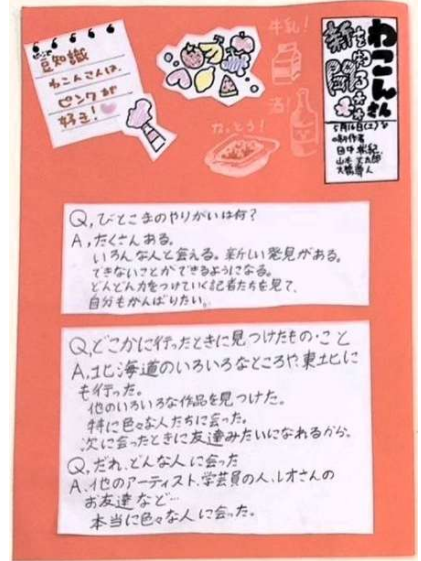 豆知識
わこんさんは、
ピンクが
好き!
牛乳!
なっとう!
わこんさん
新聞
5月16日(土)
Q,びとこまのやりがいは何?
A,たくさんある。
いろんな人と会える。新しい発見がある。
できないことができるようになる。
どんどん力をつけていく記者たちを見て、
自分もがんばりたい。
Q,どこかに行ったときに見つけたもの・こと
A,北海道のいろいろなところや、東北に
も行った。
他のいろいろな作品を見つけた。
特に色々な人たちに会った。
次に会ったときに友達みたいになれるから。
Q,だれ、どんな人に会った
A,他のアーティスト、学芸員の人、レオさんの
お友達など…
本当に色々な人に会った。